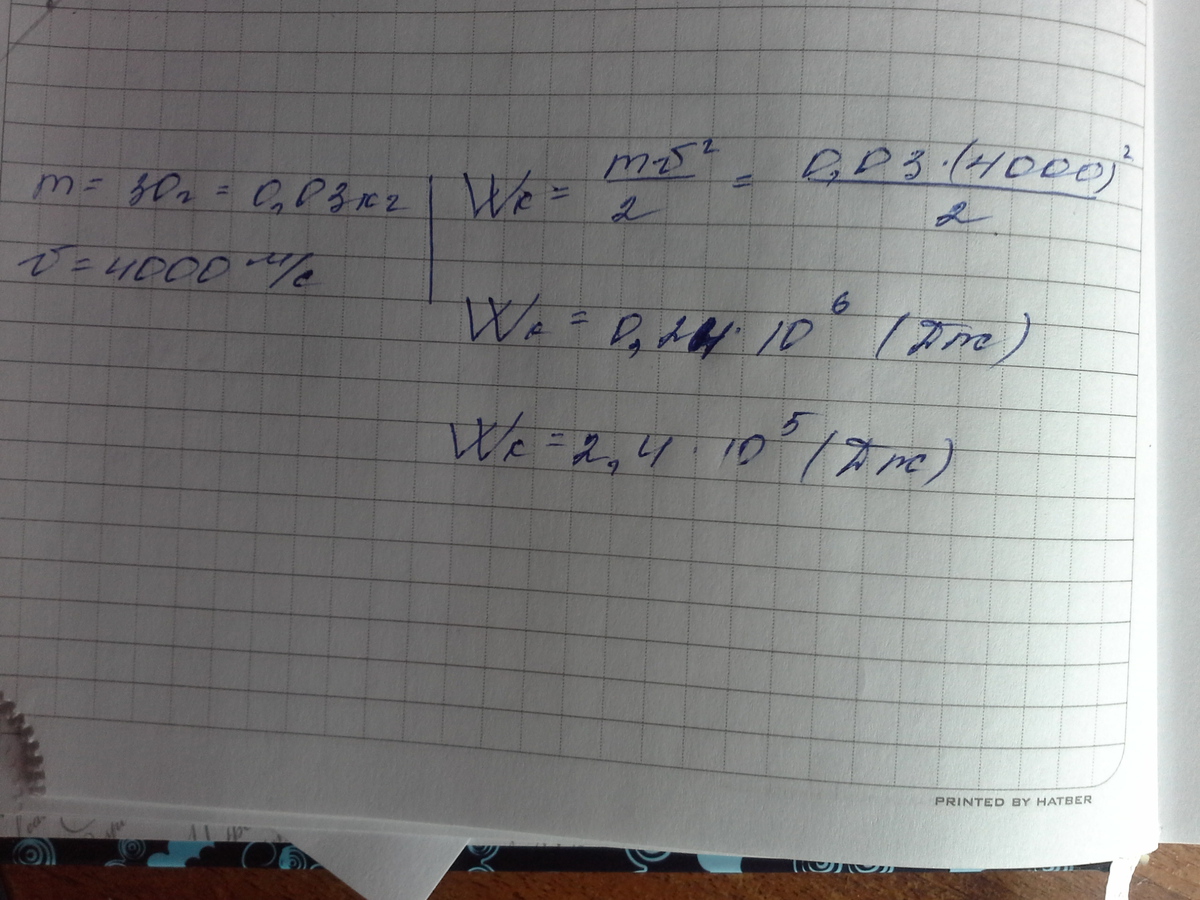 m = 30г = 0,03кг
v = 4000 м/с
Wк = mv²/2 = 0,03·(4000)²/2
Wк = 0,24·10⁶ (Дж)
Wк = 2,4·10⁵ (Дж)
PRINTED BY HATBER